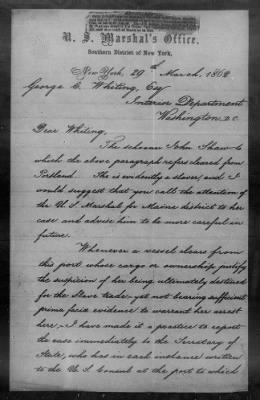 U. S. Marshal's Office,
Southern District of New York,
New York, 29th March, 1862
George C. Whiting, Esq
Interior Department
Washington D.C.
Dear Whiting,
The schooner John Shaw to
which the above paragraph refers cleared from
Portland. She is evidently a slaver, and I
would suggest that you call the attention of
the U S Marshal for Maine district to her
case and advise him to be more careful in
future.
Whenever a vessel clears from
this port whose cargo or ownership justify
the suspicion of her being ultimately destined
for the Slave trade, yet not bearing sufficient
prima facia evidence to warrant her arrest
here,– I have made it a practice to report
the case immediately to the Secretary of
State, who has in each instance written
to the U. S. Consul at the port to which